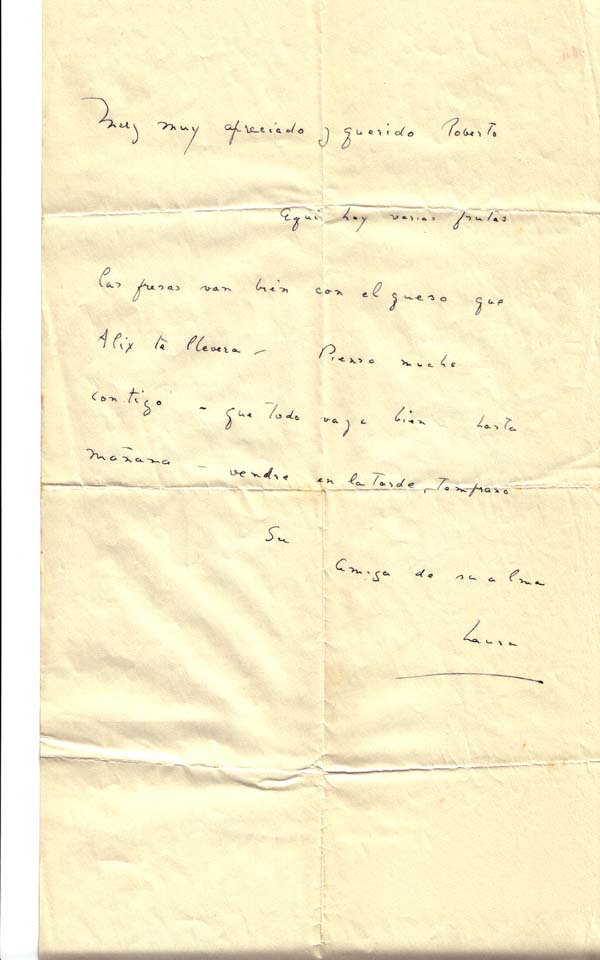 Muy muy apreciado y querido Roberto
Aqui hay varias frutas
las fresas van bién con el queso que
Alix te llevera – Pienso mucho
contigo – que todo vaya bien hasta
mañana – vendre en la tarde, temprano
Su
amiga de su alma
Laura